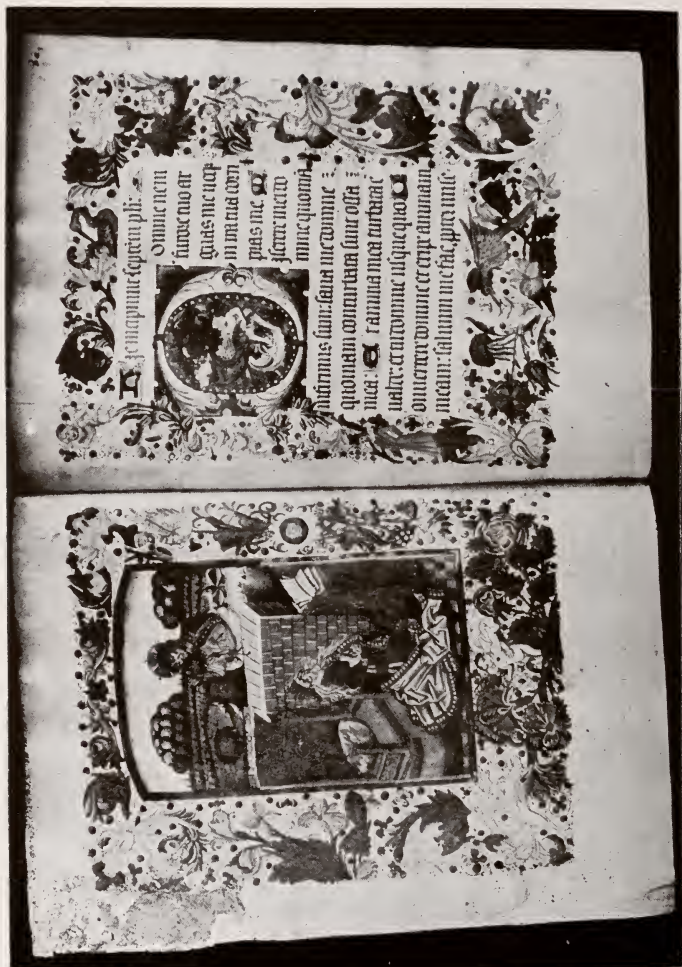 Incipiunt septem psl
Domine ne in
furore tuo ar
guas me neq
in ira tua corri
pias me. M
iserere mei do
mine quoniã
infirmus sum: sana me domine
quoniam conturbata sunt ossa
mea. Et anima mea turbata est
valde: et tu domine usquequo C
onvertere domine et eripe animam
meam: salvum me fac propter mise